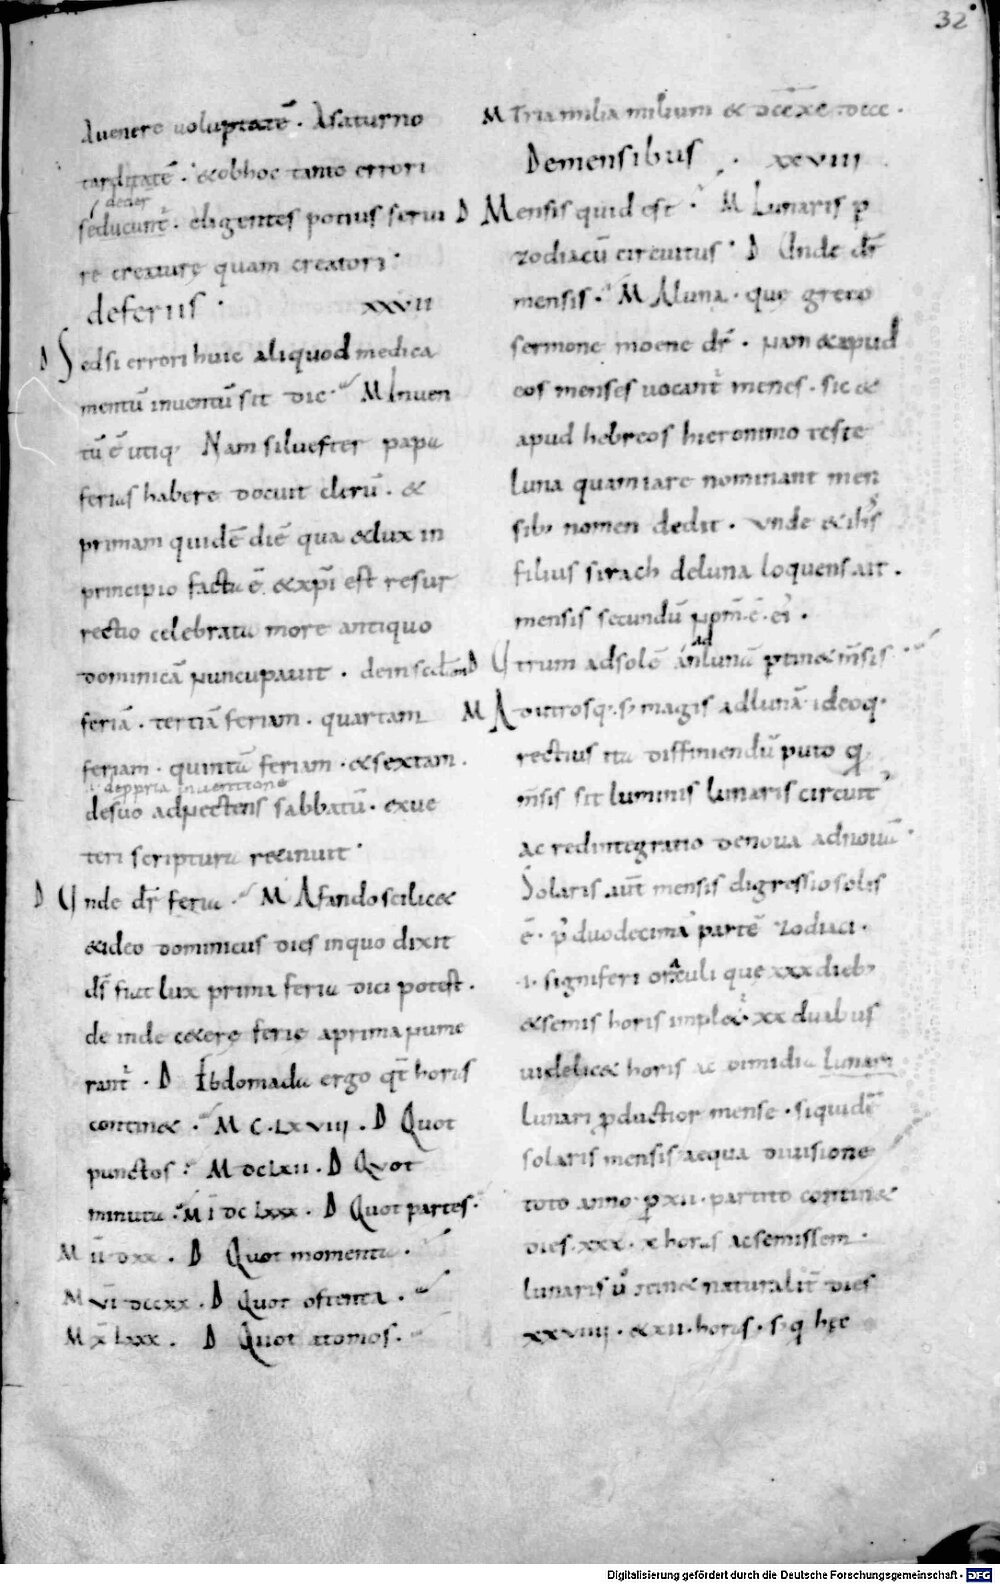 32
Auenere uoluptatē · Asaturno
tarditatē · &obhoc tanto errori
deder
seducunt᷑ · eligentes potius serui
re creaturę quam creatori ·
deferiis · xxvii
D Sedsi errori huic aliquod medica
mentū inuentū sit dic · M Inuen
tū ē utiq; Nam siluester papa
ferias habere docuit clerū · &
primam quidē diē qua &lux in
principio facta ē · &xp̄i est resur
rectio celebrata more antiquo
dominicā nuncupauit · dein
feriā · tertiā feriam · quartam
feriam · quintā feriam · &sextam ·
deppria inuentione
desuo adnectens sabbatū · exue
teri scriptura retinuit ·
D Unde dr̄ feria · M Afandoscilic&
&ideo dominicus dies inquo dixit
d̄s fiat lux prima feria dici potest ·
de inde c&erę ferię aprima nume
rant᷑ · D Ebdomada ergo qt̄ horas
contin& · M C·LXVIII · D Quot
punctos · M DCLXII · D Quot
minuta · M Ī DCLXXX · D Quot partes ·
M īī DXX · D Quot momenta ·
M v̄ī DCCXX · D Quot ostenta ·
M x̄ LXXX · D Quot atomos ·
M Tria milia milium &
Demensibus · xxviii
D Mensis quid est · M Lunaris p̄
zodiacū circuitus · D Unde dr̄
mensis · M Aluna · quę greco
sermone mene dr̄ · nam &apud
eos menses uocant᷑ menes · sic &
apud hebreos hieronimo teste
luna quam iare nominant men
sib; nomen dedit · unde &ih̄s
filius sirach deluna loquens ait ·
mensis secundū nom̄ · ē · ei᷒ ·
D Utrum adsolē an ad lunā ptin& m̄sis ·
M Adutrosq; · s; magis adlunā ideoq;
rectius ita diffiniendū puto q̄
m̄sis sit luminis lunaris circuit᷒
ac redintegratio denoua adnouā ·
Solaris aut̄ mensis digressio solis
ē · p̄ duodecimā partē zodiaci ·
·i· signiferi circuli que xxx dieb;
&semis horis impl&᷑ xx duabus
uidelic& horis ac dimidia lunari
lunari pductior mense · siquidē
solaris mensis aequa diuisione
toto anno p xii · partito contin&
dies · xxx · x horas ac semissem ·
lunaris ů̊ retin& naturalit̄ dies
xxviiii · &xii · horas · s; q hęc